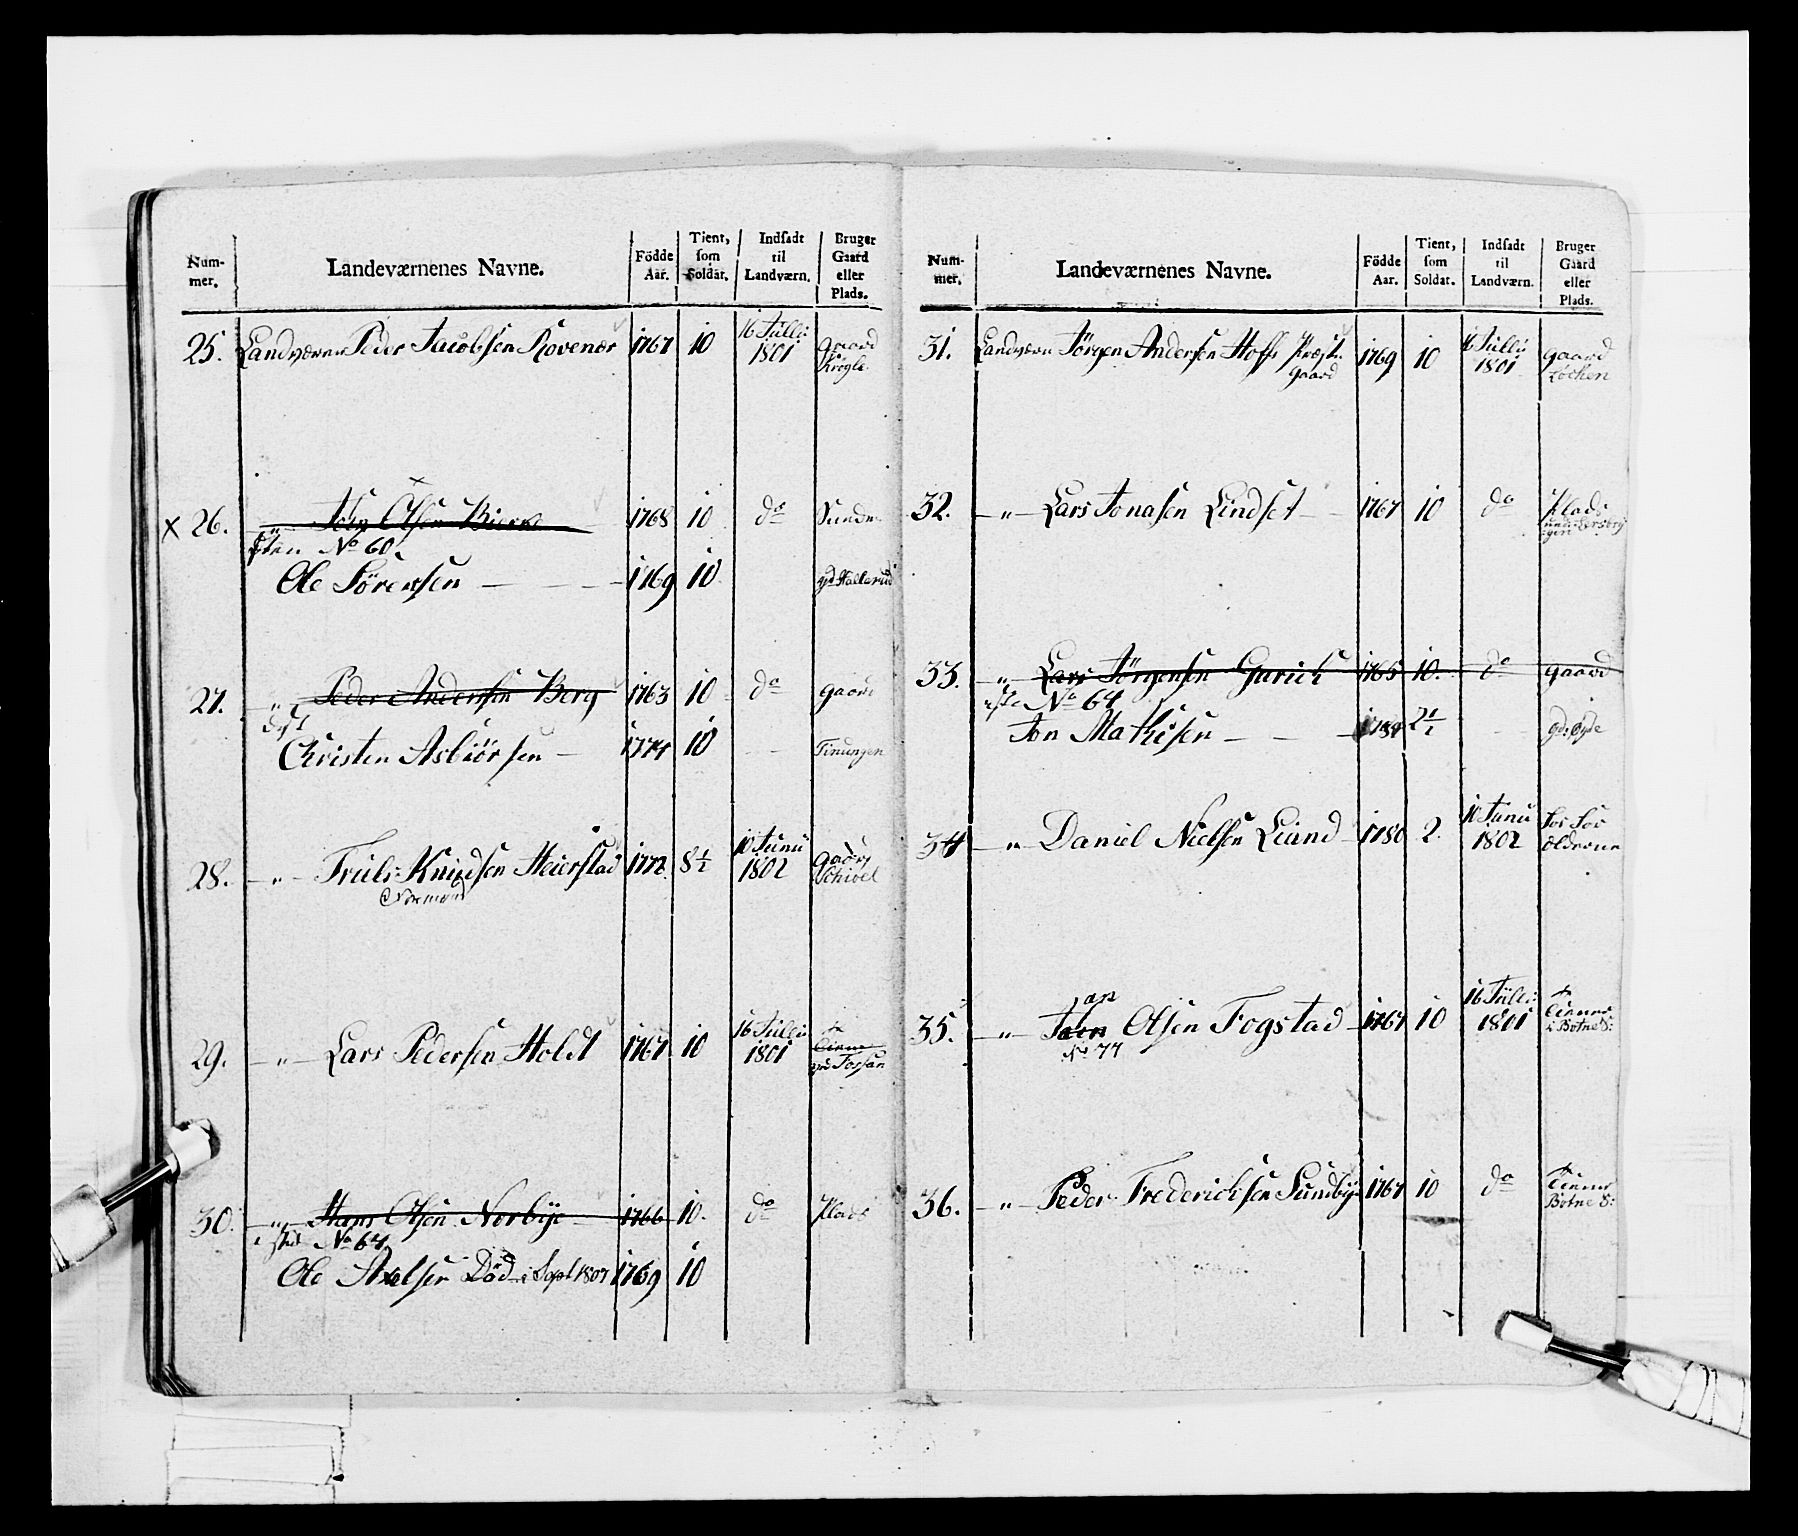 Num-
mer.
Landeværnenes Navne.
Födde
Aar.
Tient,
som
Soldat.
Indsadt
til
Landværn.
Bruger
Gaard
eller
Plads.
25. Landværn Peder Jacobsen Rovenær 1767 10 16 Julii 1801 Gaard Krogle
x 26. " Olsen Bierke 1768 10 do
No 60.
Ole Sörensen 1769 10 gd Hallerud
27. " Peder Andersen Berg 1763 10 do gaard
Christen Asbiörsen 1774 10
28. " Truls Knudsen Heierstad 1772 8½ 10 Junii 1802 Gaard
29. " Lars Pedersen Holdt 1767 10 16 Julii 1801 Fossan
30. " Hans Olsen Norbye 1766 10. do Plads
No 64.
Ole Axelsen Död i Sept 1807 1769 10
Num-
mer.
Landeværnenes Navne.
Födde
Aar.
Tient,
som
Soldat.
Indsadt
til
Landværn.
Bruger
Gaard
eller
Plads.
31. Landværn Jörgen Andersen Hoff Præste
gaard 1769 10 16 Julii 1801 gaard Löcken
32. " Lars Jonasen Lindset 1767 10 do Plads
33. " Lars Jörgensen Gurich 1765 10. do gaard
No 64
Jon Mathisen
34 " Daniel Nielsen Lund 1780 2. 10 Junii 1802
35. " Jan Olsen Fogstad 1767 10 16 Julii 1801
No 77
36. " Peder Frederichsen Sundbye 1767 10 do